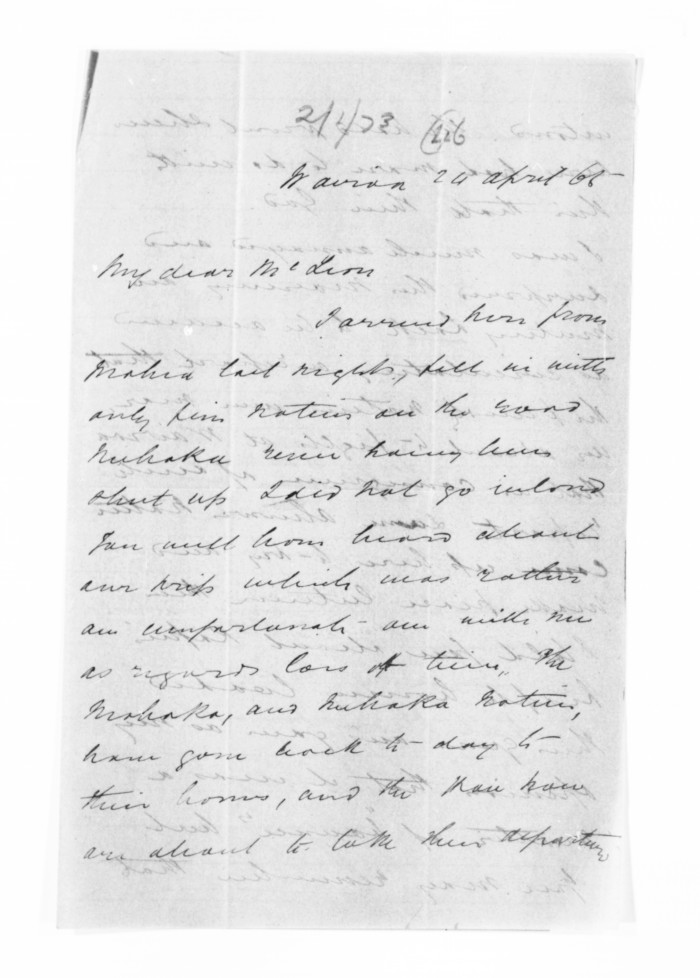 2/1/73 116
Wairoa 24 april 65
My dear McLean
I arrived here from
Mahia last night, fell in with
only five natives on the road
Nuhaka river having been
shut up I did not go inland
You will have heard about
our trip which was rather
an unfortunate one with me
as regards loss of time, The
Mohaka, and Nuhaka natives,
have gone back to day to
their homes, and the
are about to take their departure